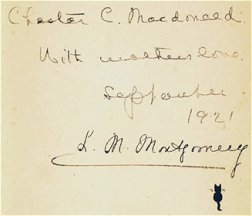 Chester C. Macdonald.
With mother's love.
September.
1921
L. M. Montgomery